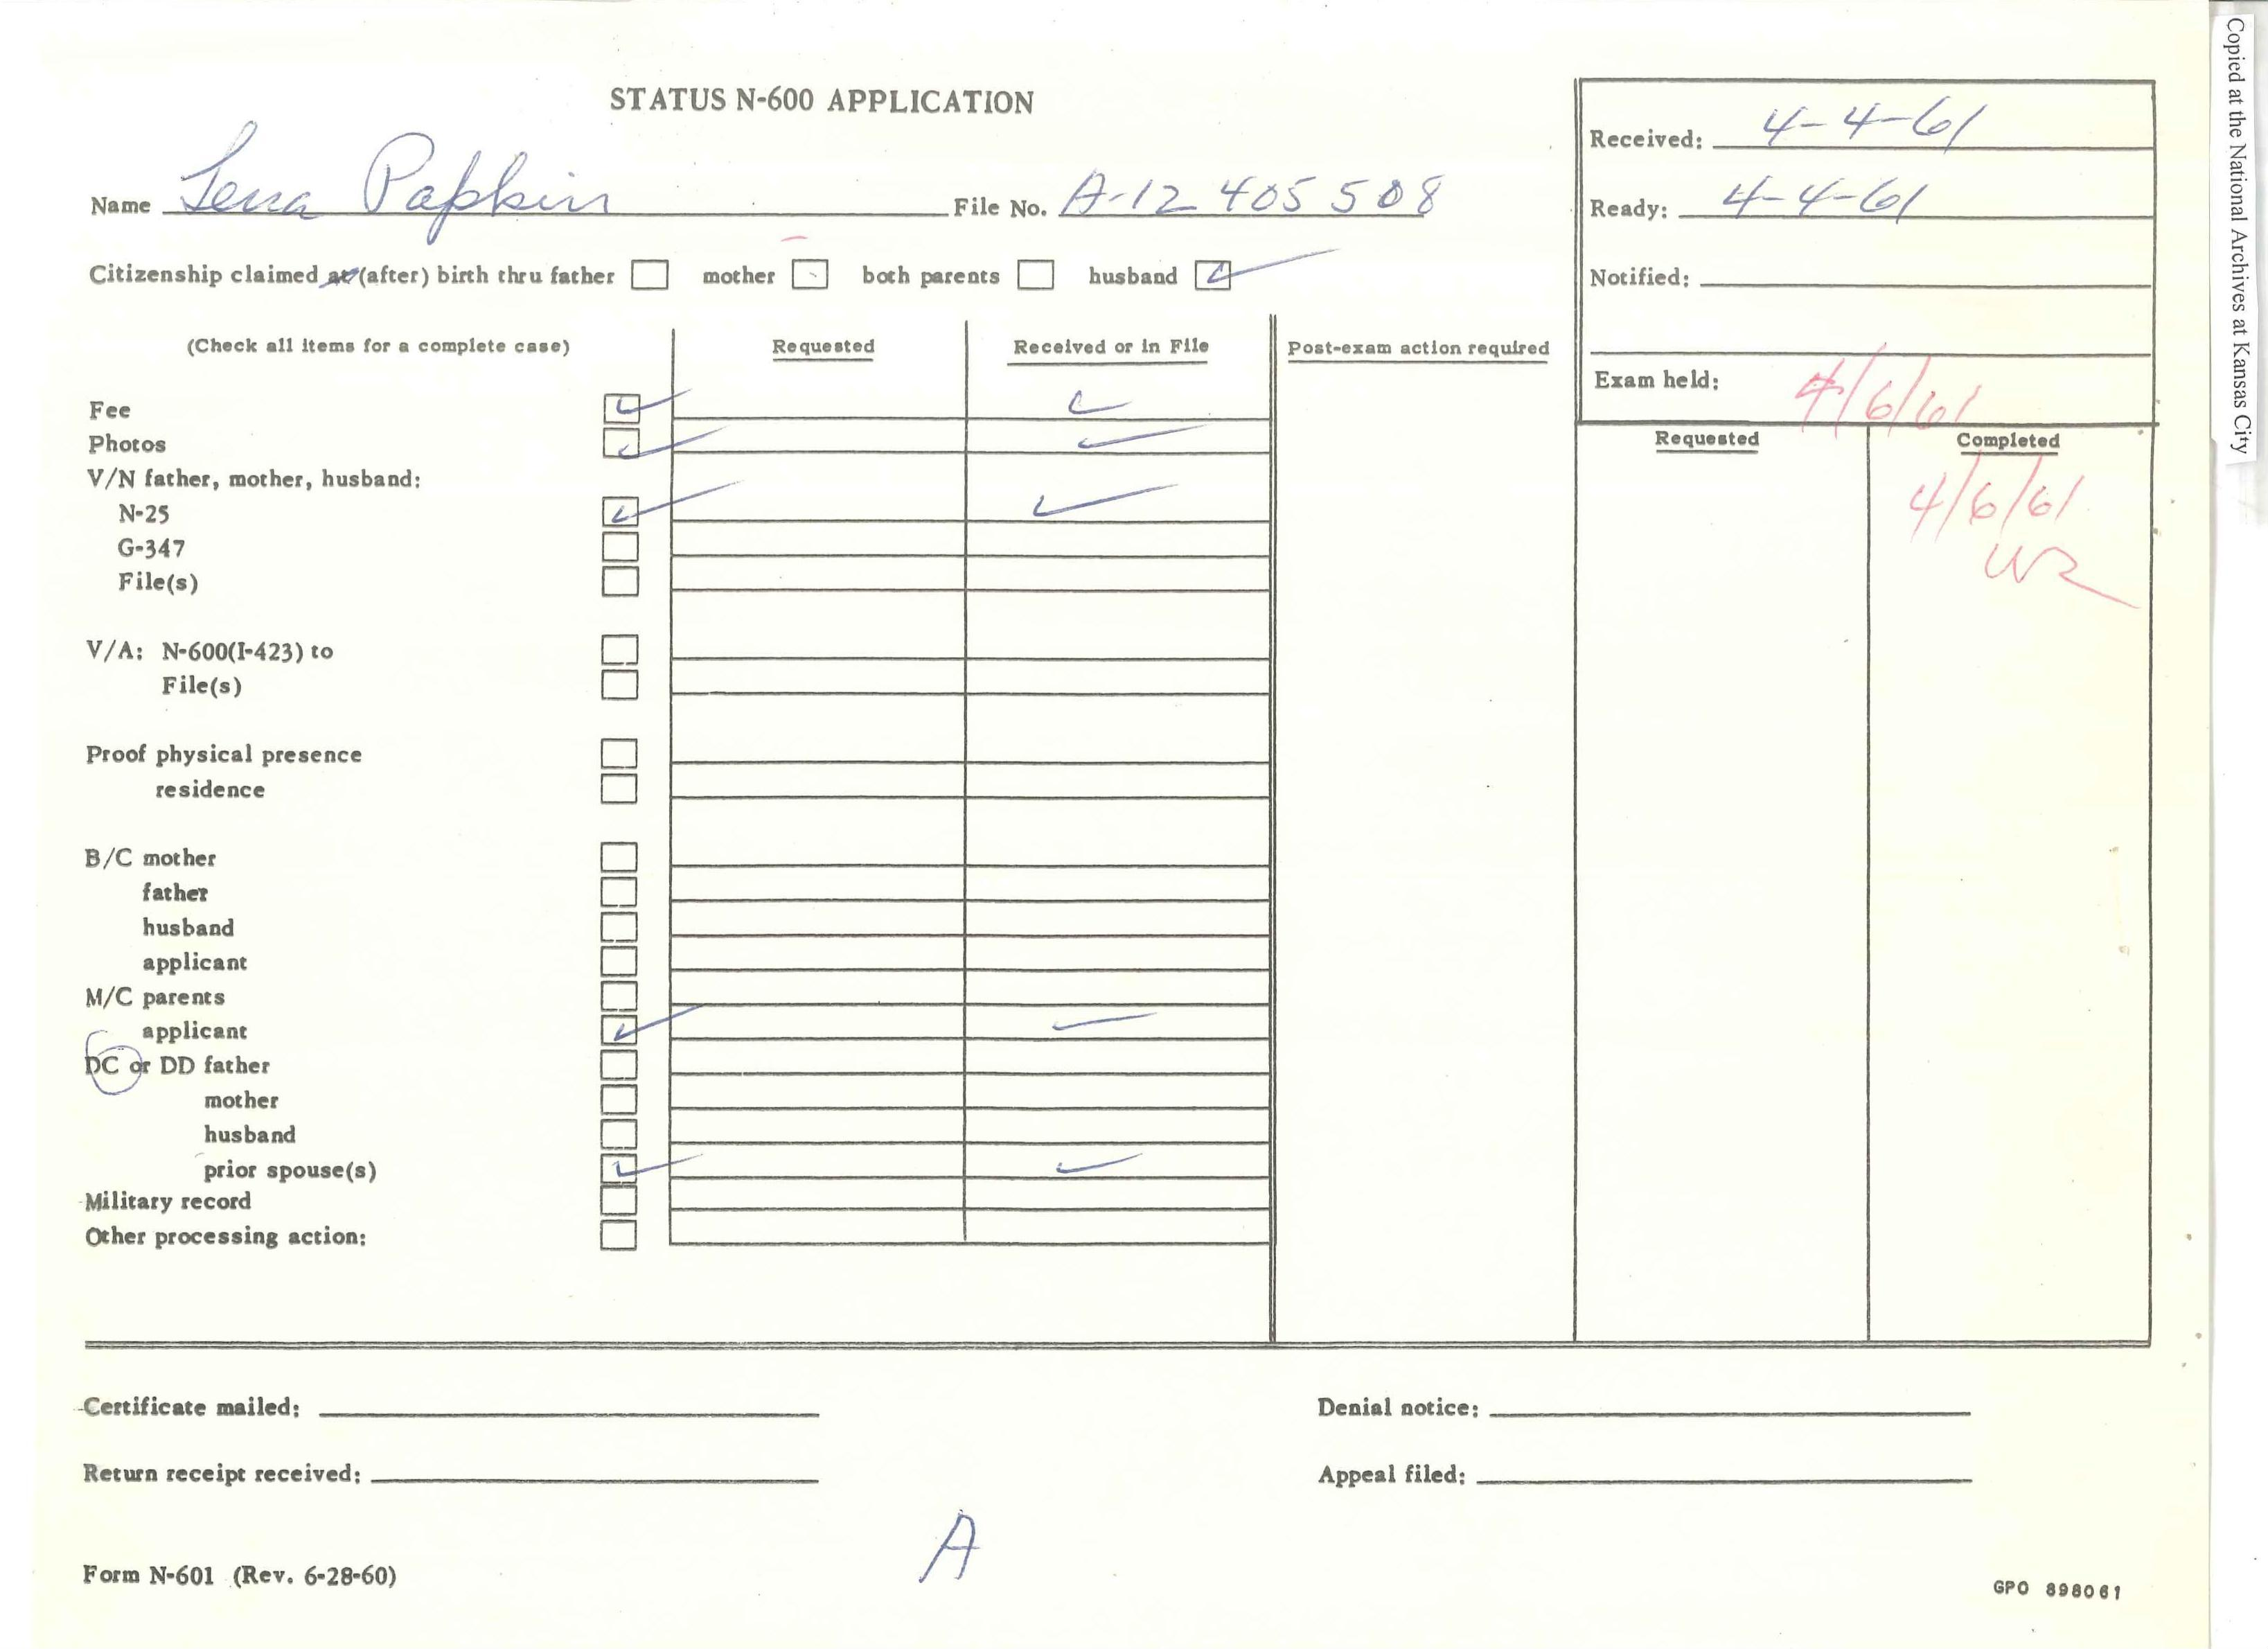 STATUS N-600 APPLICATION
Name Lena Papkin File No. A-12 405 508
Citizenship claimed at (after) birth thru father mother both parents husband
Received: 4-4-61
Ready: 4-4-61
Notified:
Exam held: 4/6/61
(Check all items for a complete case) Requested Received or in File Post-exam action required Requested Completed
4/6/61
Fee
Photos
V/N father, mother, husband:
N-25
G-347
File(s)
V/A: N-600(I-423) to
File(s)
Proof physical presence
residence
B/C mother
father
husband
applicant
M/C parents
applicant
DC or DD father
mother
husband
prior spouse(s)
Military record
Other processing action:
Certificate mailed: Denial notice:
Return receipt received: Appeal filed:
A
Form N-601 (Rev. 6-28-60)
GPO 898061
Copied at the National Archives at Kansas City